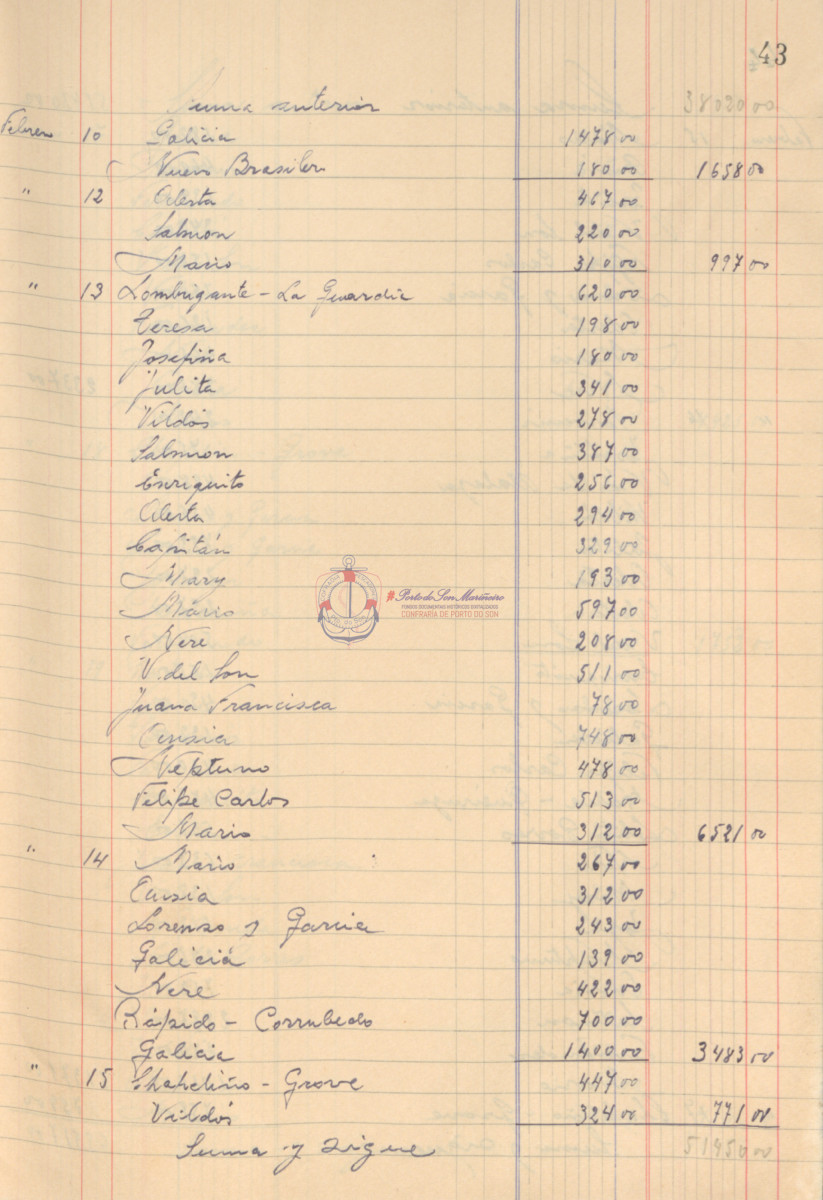 43
Suma anterior 3802000
Febrero 10 Galicia 1478 00
Nuevo Brasiler 180 00 1658 00
" 12 Alerta 467 00
Salmon 220 00
Mario 310 00 997 00
" 13 Lombrigante - La Guardia 620 00
Teresa 198 00
Josefiña 180 00
Julita 341 00
Vildós 278 00
Salmon 387 00
Enriquito 256 00
Alerta 294 00
Capitán 329 00
Mary 193 00
Mário 597 00
Nere 208 00
V. del Son 511 00
Juana Francisca 78 00
748 00
Neptuno 478 00
Felipe Carlos 513 00
Mario 312 00 6521 00
" 14 Mario 267 00
312 00
Lorenzo y Garcia 243 00
Galiciá 139 00
Nere 422 00
Rápido - Corrubedo 700 00
Galicia 1400 00 3483 00
" 15 Chapeliño - Grove 447 00
Vildós 324 00 771 00
Suma y sigue 5145000
Porto do Son Mariñeiro
FONDOS DOCUMENTAIS HISTÓRICOS DIXITALIZADOS
CONFRARÍA DE PORTO DO SON